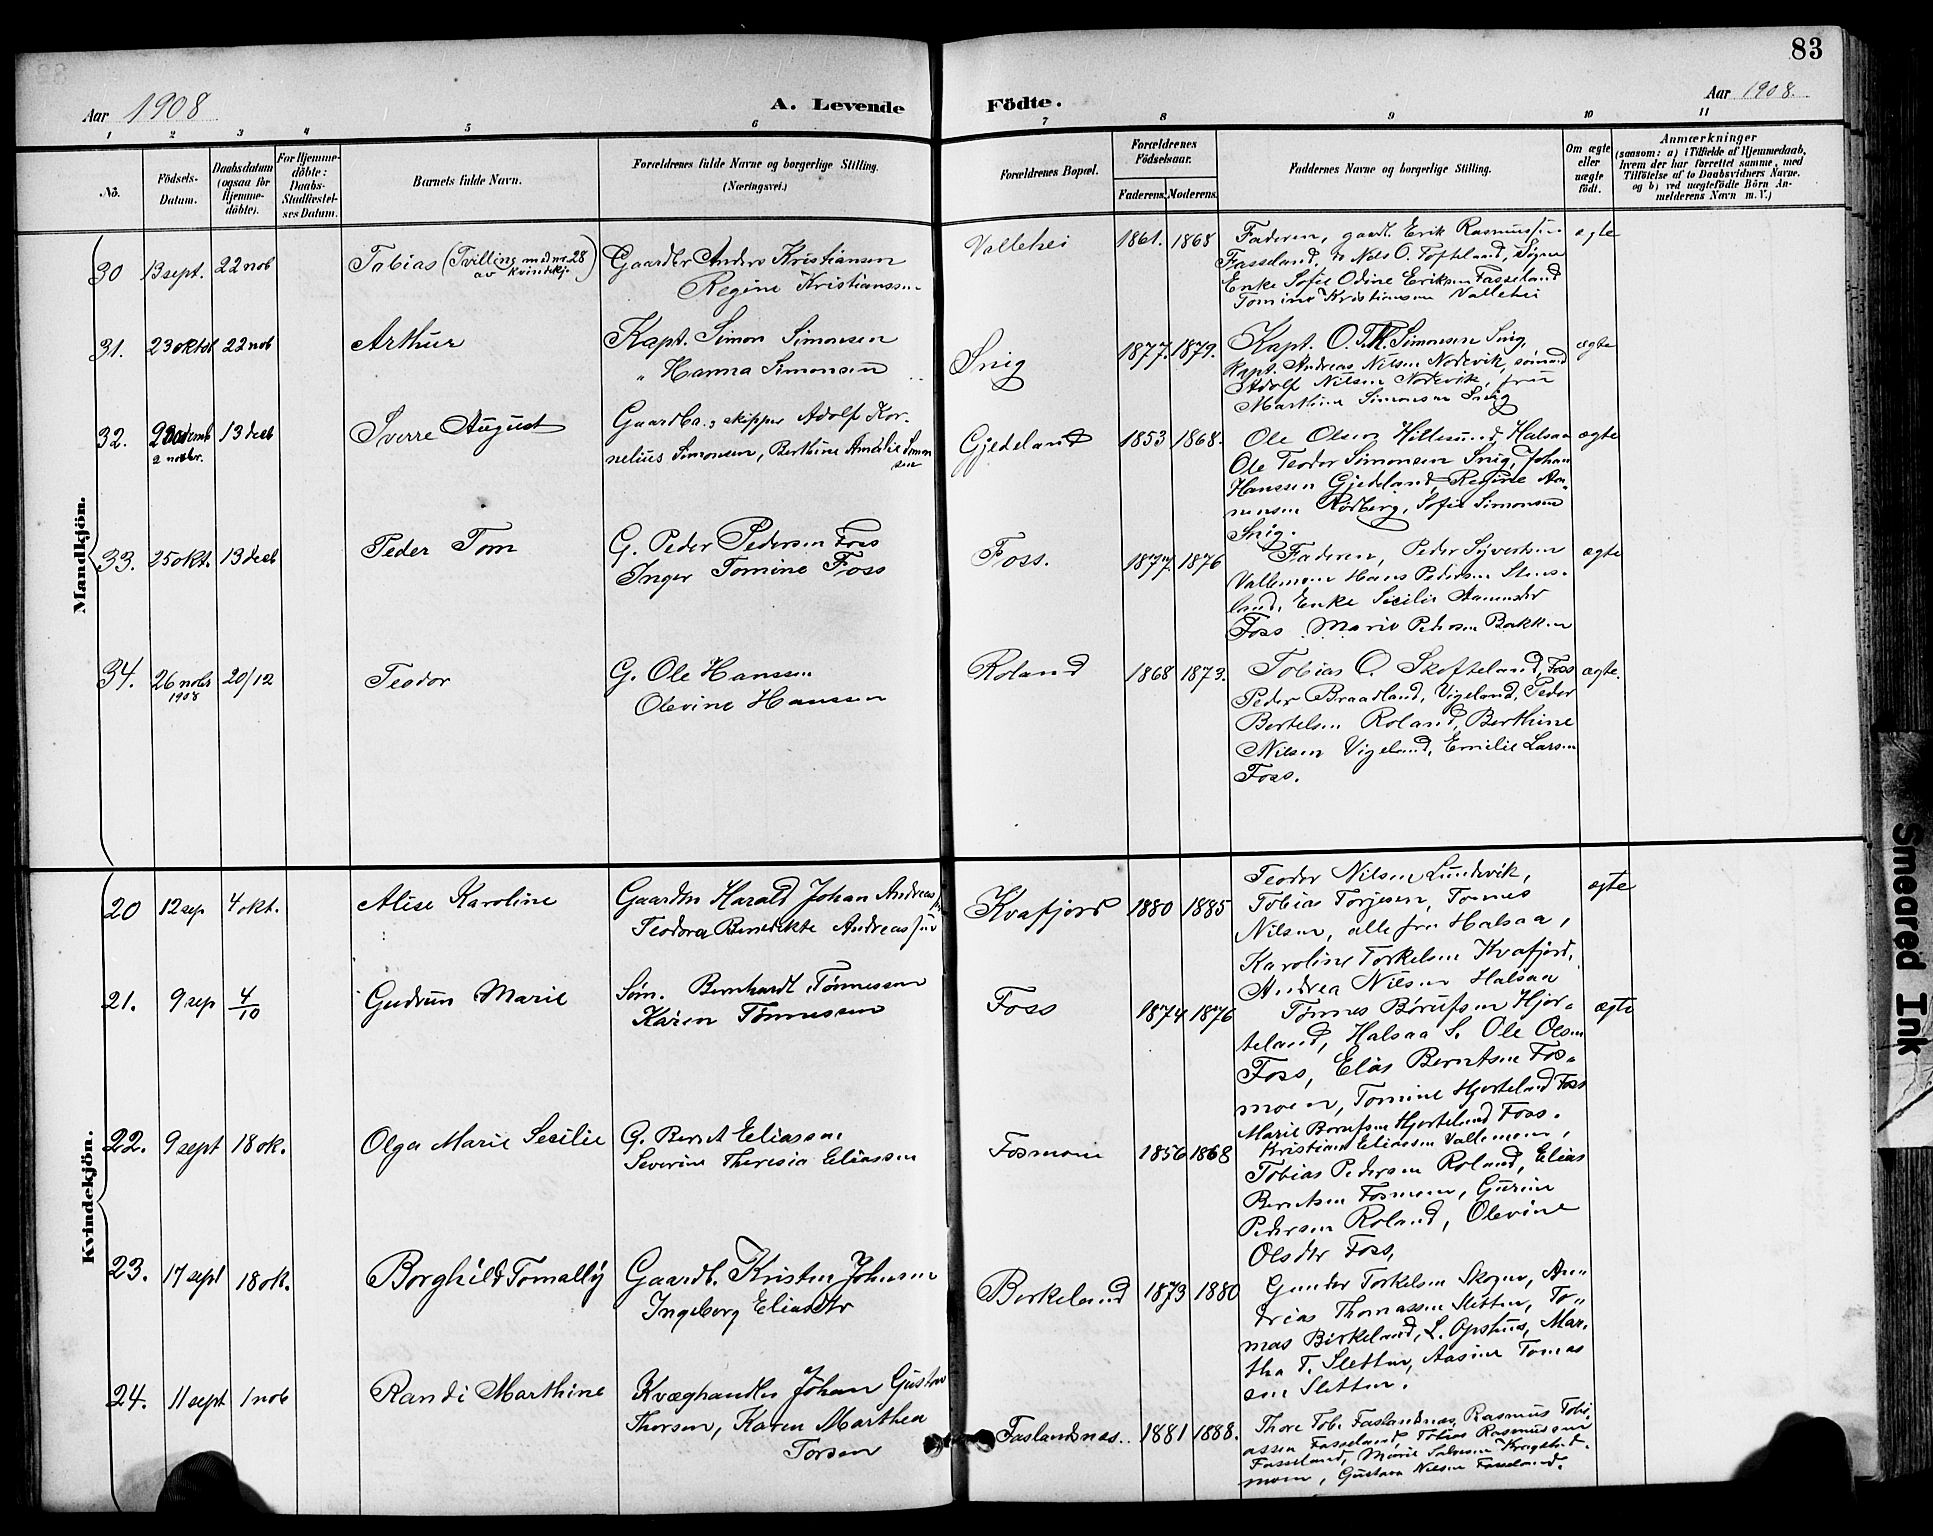 83
Aar 1908 A. Levende Födte. Aar 1908.
1 2 3 4 5 6 7 8 9 10 11
No. Födsels-Datum. Daabsdatum (ogsaa for Hjemme-döbte). For Hjemme-döbte: Daabs-Stadfæstel-ses Datum. Barnets fulde Navn. Forældrenes fulde Navne og borgerlige Stilling. (Næringsvei.) Forældrenes Bopæl. Forældrenes Födselsaar. Faderens. Moderens. Faddernes Navne og borgerlige Stilling. Om ægte eller uægte födt. Anmærkninger (saasom: a) i Tilfælde af Hjemmedaab, hvem der har forrettet samme, med Tilföielse af to Daabsvidners Navne, og b) ved uægtefödte Börn An-melderens Navn m. V.)
Mandkjön.
30 13 sept. 22 nob Tobias (Tvilling med nr. 28 av kvindekj.) Gaardbr Anders Kristiansen
Regine Kristianssen
Vallehei 1861. 1868 Faderen, gaardt. Erik Rasmussen ægte
Fasseland, Nels O. Tofteland, Søgne
Enke Sofie Odine Eriksen Fasseland
Tomine Kristiansen Vallehei
31. 23 oktob 22 nob Arthur Kapt. Simon Simonsen
" Hanna Simonsen
Snig 1877. 1879. Kapt. O. T. Simonsen Snig, ægte
Kapt. Andreas Nilsen Nodevik, sømand
Adolf Nilsen Nodevik, fru
Marthine Simonsen Snig
32. 13 decb Sverre August Gaardbr., skipper Adolf Kor-
2 nobr.
nelius Simonsen, Berthine Amalie Simon
sen
Gjedeland 1853 1868. Ole Olsen Hillesund, Halsaa ægte
Ole Teodor Simonsen Snig, Johan
Hanssen Gjedeland, Regine
Rødberg, Sofie Simonsen
Snig.
33. 25 okt. 13 decb Peder Tom G. Peder Pedersen Foss
Inger Tomine Foss
Foss. 1877. 1876 Faderen, Peder Syvertsen ægte
Vallemoen Hans Pedersen Stens-
land, Enke Secilie
Foss, Marie Pedersen Bakken
34. 26 nobr 20/12 Teodor G. Ole Hanssen
1908
Olevine Hanssen
Roland 1868 1873. Tobias O. Skofteland, Foss ægte.
Peder Braadland, Vigeland, Peder
Bertelsen Roland, Berthine
Nilsen Vigeland, Emelie Larsen
Foss.
Kvindekjön.
20 12 sep 4 okt. Alise Karoline Gaardbr Harald Johan Andreassen
Teodora Benedikte Andreassen
Kvafjord 1880 1885 Teodor Nilsen Lundevik, ægte
Tobias Torjesen, Tønnes
Nilsen, alle fra Halsaa,
Karoline Torkelsen Kvafjord,
Andrea Nilsen Halsaa
21. 9 sep 4/10 Gudrun Marie Søm. Bernhardt Tønnessen
Karen Tønnessen
Foss 1874 1876 Tønnes Børufsen Hjor- ægte
teland, Halsaa S. Ole Olsen
Foss, Elias Berntsen Fos-
moen, Tomine Hjorteland Foss
Marie Børufsen Hjorteland Foss.
22. 9 sept 18 ok. Olga Marie Secilie G. Bernt Eliassen
Severine Theresia Eliassen
Fosmoen 1856 1868 Kristian Eliassen Vallemoen,
Tobias Pedersen Roland, Elias
Berntsen Fosmoen, Gurine
Pedersen Roland, Olevine
Olsdtr Foss,
23. 17 sept 18 ok. Borghild Tomally Gaardb. Kristen Johnsen
Ingeborg Eliasdtr
Birkeland 1873 1880 Gunder Torkelsen Skogen, An-
dreas Thomassen Sletten, To-
mas Birkeland, L. Opshus, Mar-
tha T. Sletten, Aasine Tomas
sen Sletten.
24. 11 sept 1 nob Randi Marthine Kvæghandler Johan Gustav
Thorsen, Karen Marthea
Torsen
Faslandsnæs. 1881 1888. Thore Tob. Faslandsnæs, Rasmus Tobi-
assen Fasseland, Tobias Rasmussen
Fasseland, Marie Salvesen
moen, Gustava Nilsen Fasseland.
Smeared Ink